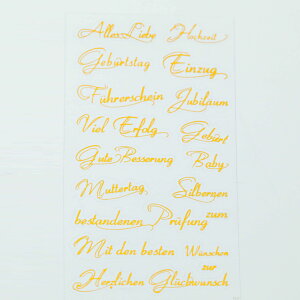 Alles Liebe Hochzeit
Geburtstag Einzug
Führerschein Jubiläum
Viel Erfolg Geburt
Gute Besserung Baby
Muttertag Silbernen
bestandenen Prüfung zum
Mit den besten Wünschen
zur
Herzlichen Glückwunsch